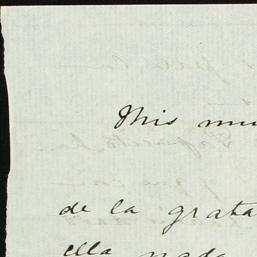 Mis mu
de la grata
ella nada